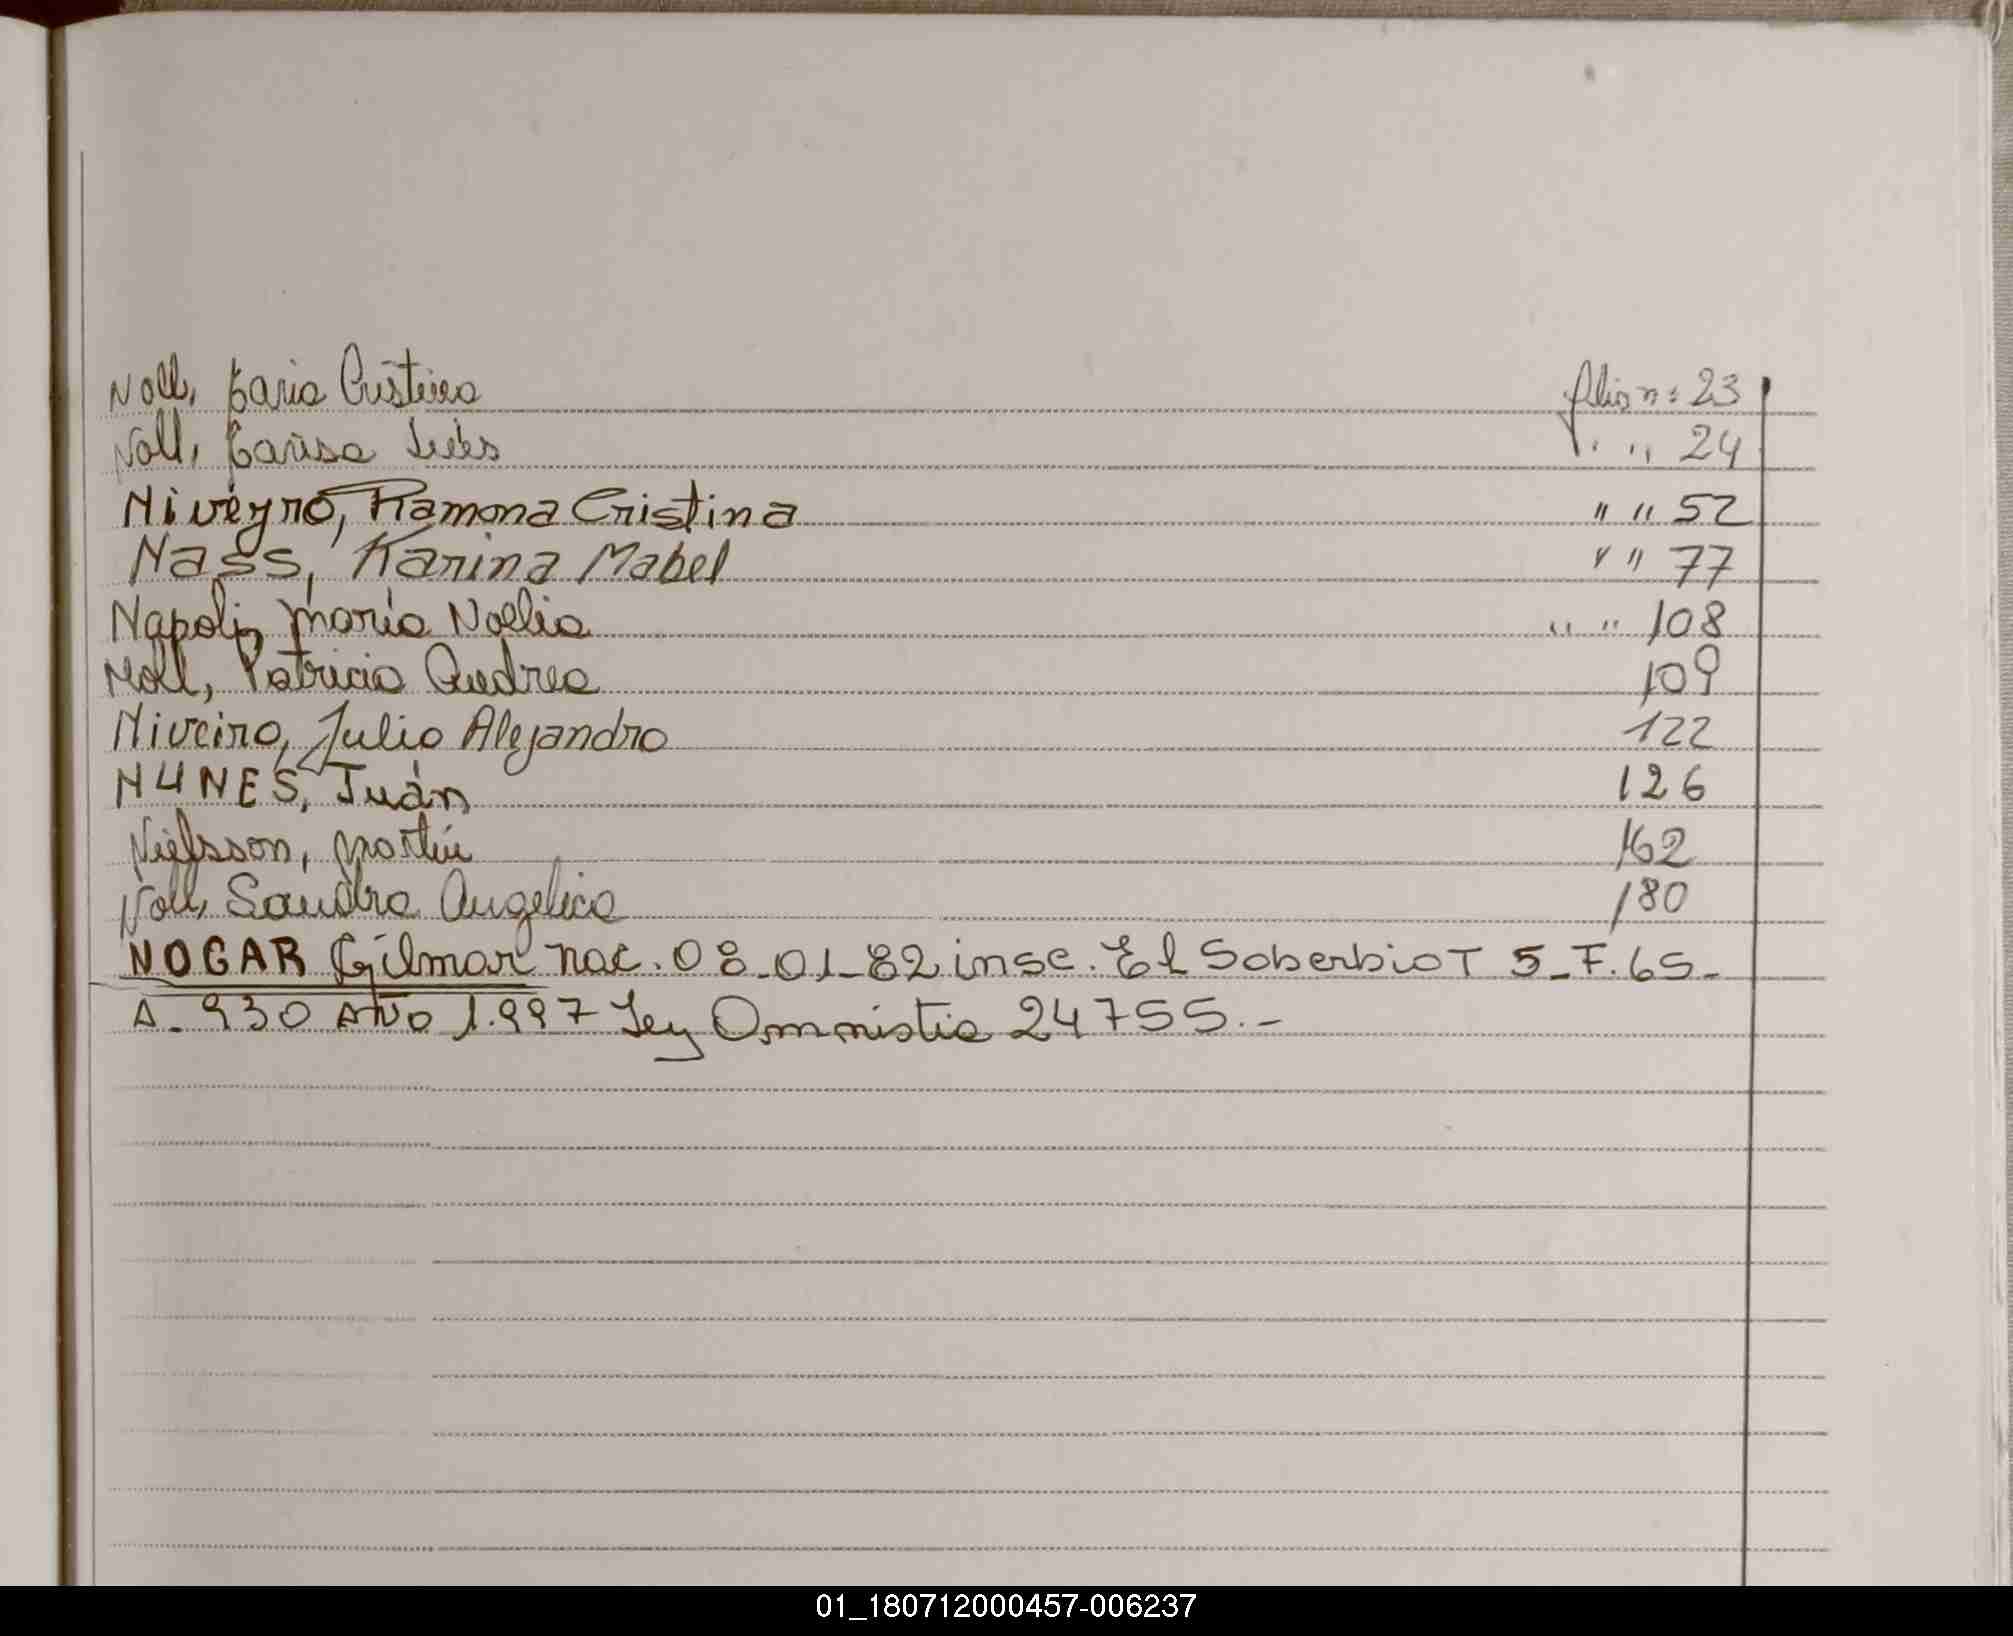 Noll, Karia Cristina folio n: 23
Noll, Carisa Inés " " 24
Niveyro, Ramona Cristina " " 52
Nass, Karina Mabel " " 77
Napoli, María Noelia " " 108
Noll, Patricia Andrea 109
Niveiro, Julio Alejandro 122
NUNES, Juán 126
Nielsson, Martín 162
Noll, Sandra Angelica 180
NOGAR Gilmar nac. 08-01-82 insc. El Soberbio T 5-F.65-
A- 930 AÑO 1.997 Ley Omnistia 24755.-
01_180712000457-006237